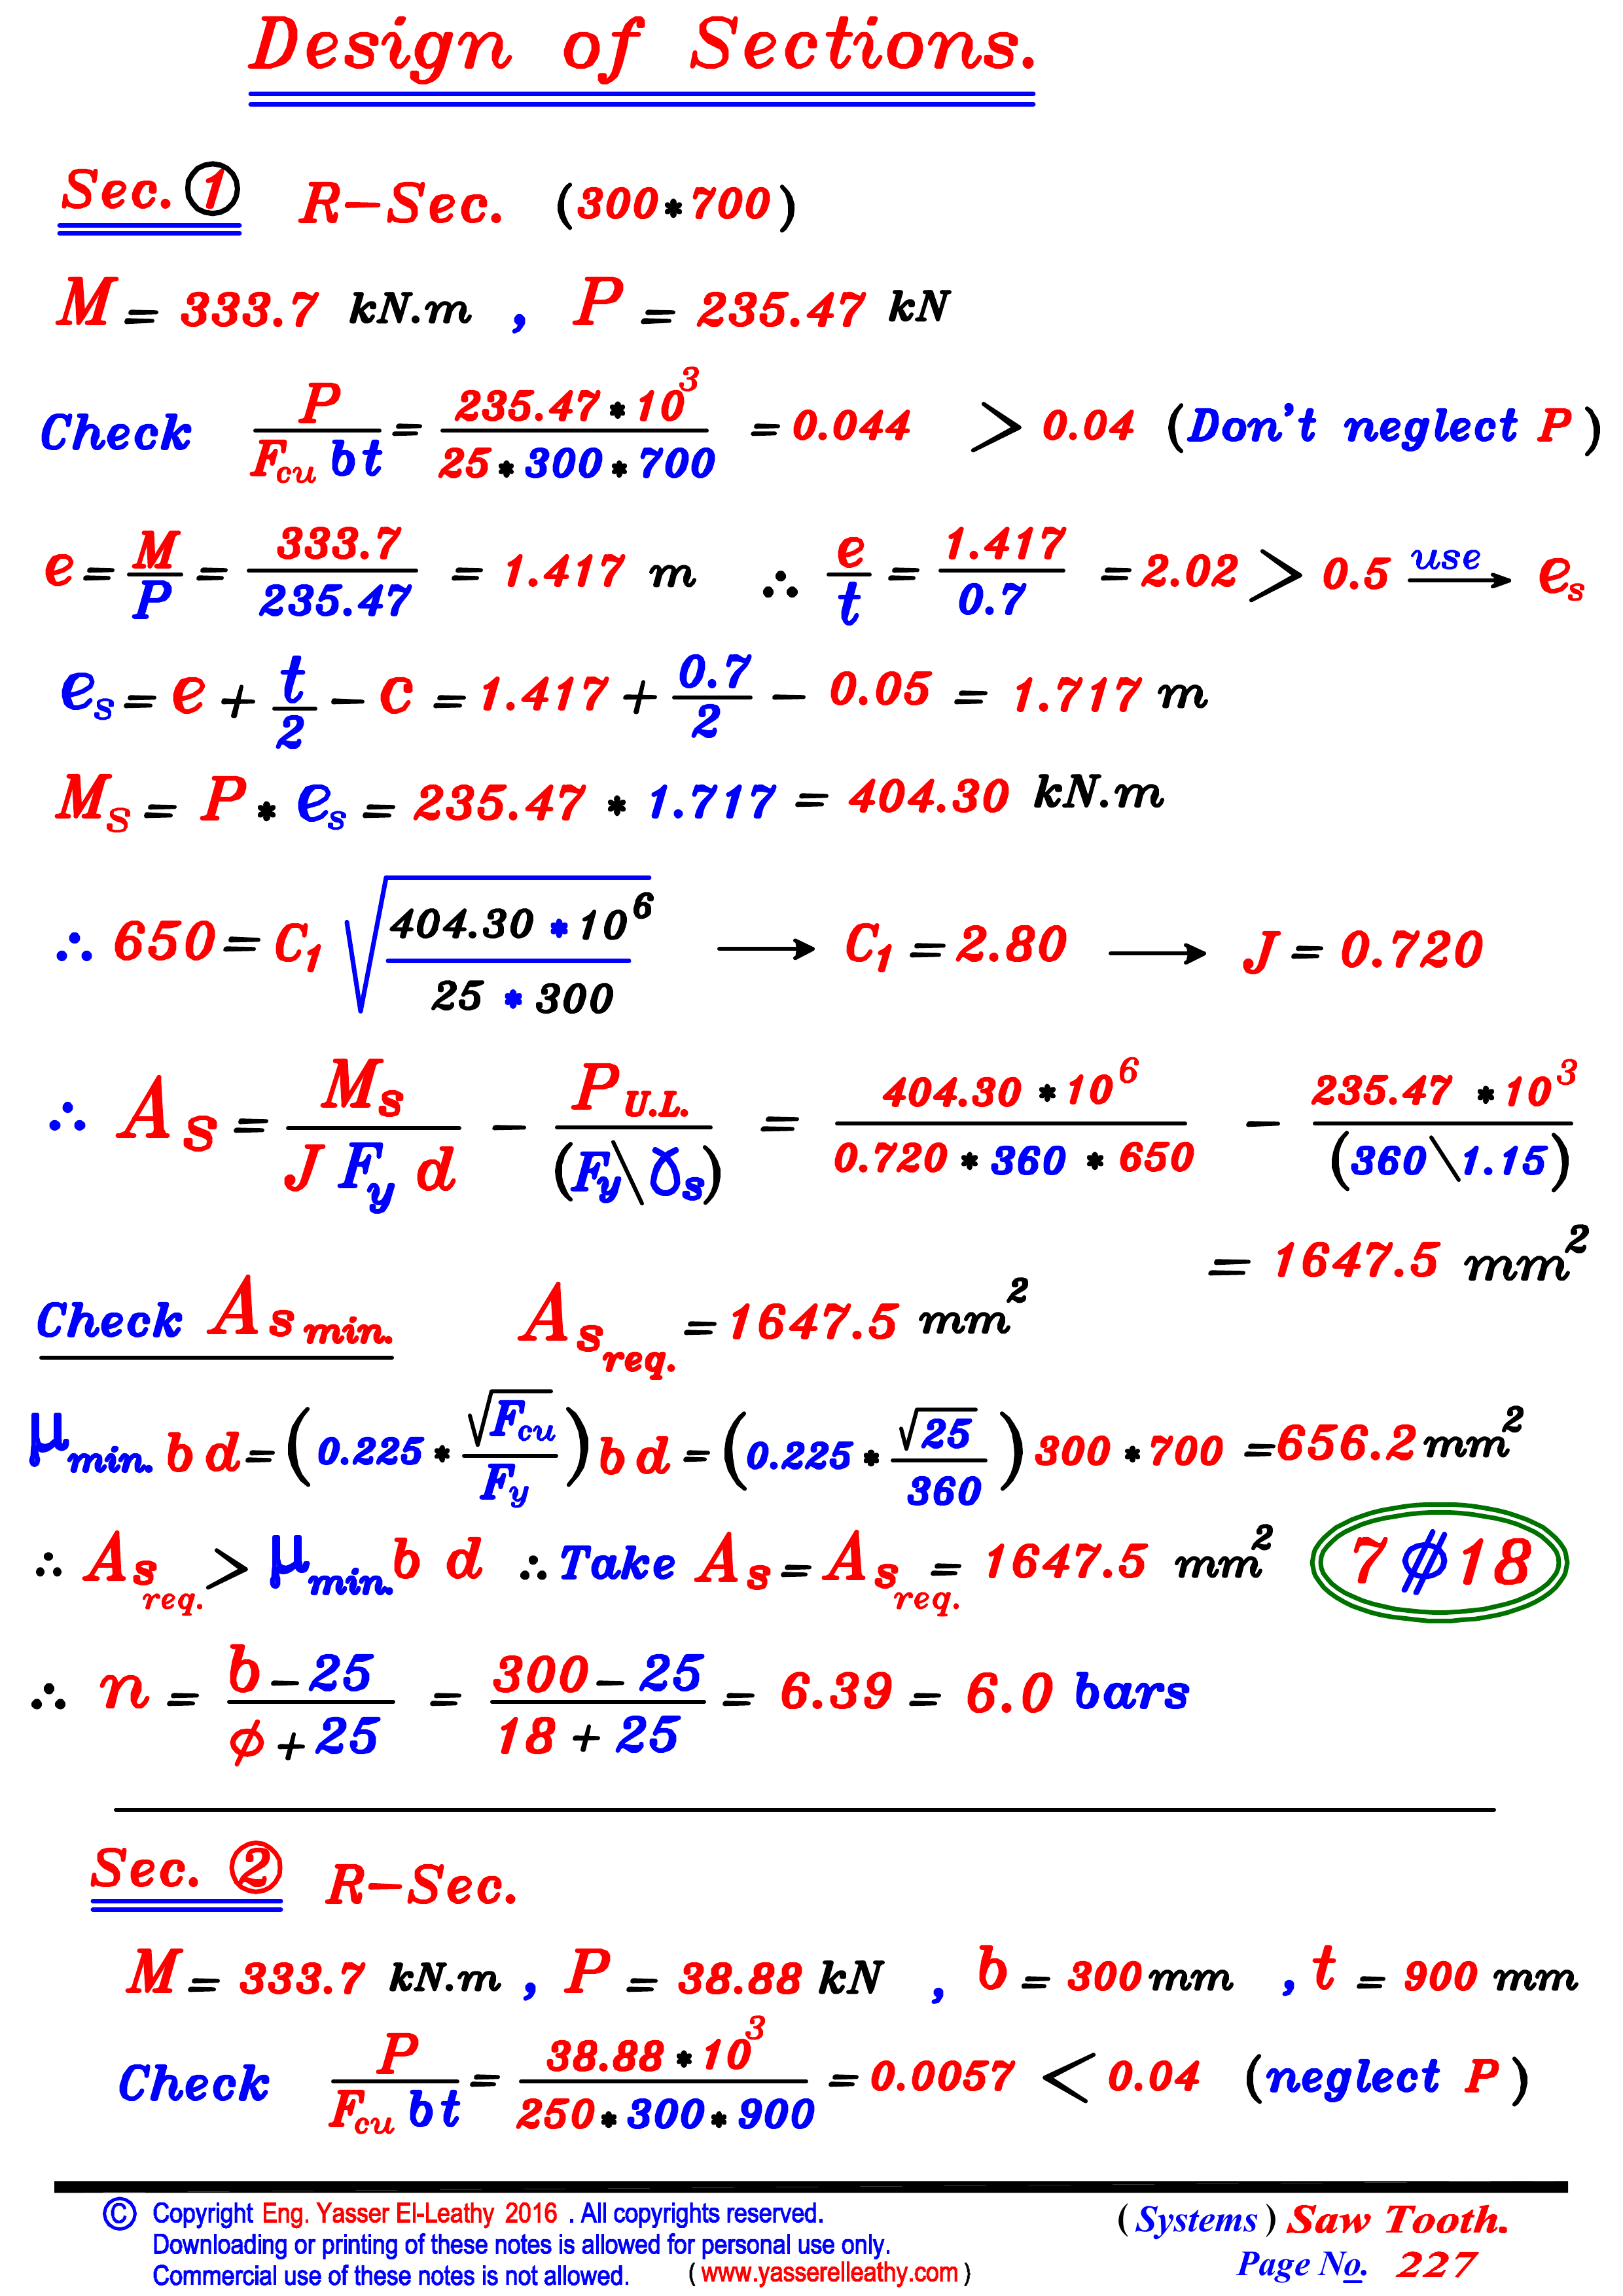 Design of Sections.
Sec. ① R-Sec. (300*700)
M = 333.7 kN.m , P = 235.47 kN
Check P / F_cu b t = 235.47*10^3 / 25*300*700 = 0.044 > 0.04 (Don't neglect P)
e = M / P = 333.7 / 235.47 = 1.417 m ∴ e / t = 1.417 / 0.7 = 2.02 > 0.5 use → e_s
e_s = e + t / 2 - c = 1.417 + 0.7 / 2 - 0.05 = 1.717 m
M_s = P * e_s = 235.47 * 1.717 = 404.30 kN.m
∴ 650 = C_1 √(404.30*10^6 / 25*300) → C_1 = 2.80 → J = 0.720
∴ A_s = M_s / J F_y d - P_U.L. / (F_y\ɣ_s) = 404.30*10^6 / 0.720*360*650 - 235.47*10^3 / (360\1.15)
= 1647.5 mm^2
Check A_s min. A_s req. = 1647.5 mm^2
μ_min. b d = (0.225*√F_cu / F_y) b d = (0.225*√25 / 360) 300*700 = 656.2 mm^2
∴ A_s req. > μ_min. b d ∴ Take A_s = A_s req. = 1647.5 mm^2 7 ⌀ 18
∴ n = b-25 / φ+25 = 300-25 / 18+25 = 6.39 = 6.0 bars
Sec. ② R-Sec.
M = 333.7 kN.m , P = 38.88 kN , b = 300 mm , t = 900 mm
Check P / F_cu b t = 38.88*10^3 / 250*300*900 = 0.0057 < 0.04 (neglect P)
© Copyright Eng. Yasser El-Leathy 2016 . All copyrights reserved.
Downloading or printing of these notes is allowed for personal use only.
Commercial use of these notes is not allowed. (www.yasserelleathy.com)
(Systems) Saw Tooth.
Page No. 227